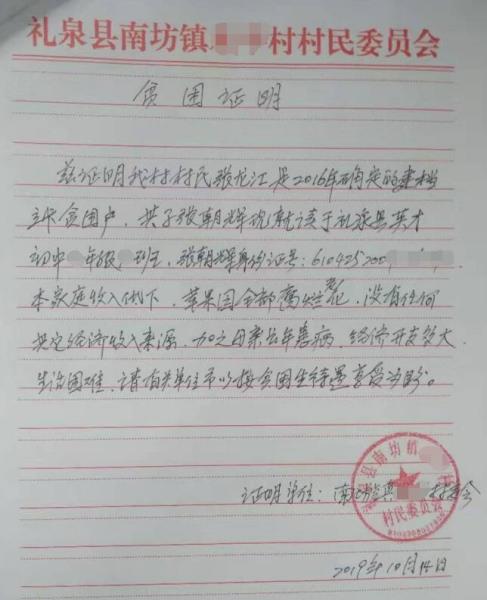 礼泉县南坊镇 村村民委员会
贫困证明
兹证明我村村民张龙江是2016年确定的建档
立卡贫困户,其子张朝辉现就读于礼泉县英才
初中 年级 班,张朝辉身份证号:610425200
本家庭收入低下,苹果园全部腐烂 挖,没有任何
其它经济收入来源,加之母亲长年患病,经济开支较大,
生活困难,请有关单位予以按贫困生待遇享受为盼。
证明单位:南坊镇 村委会
礼泉县南坊镇
村民委员会
2019年10月14日